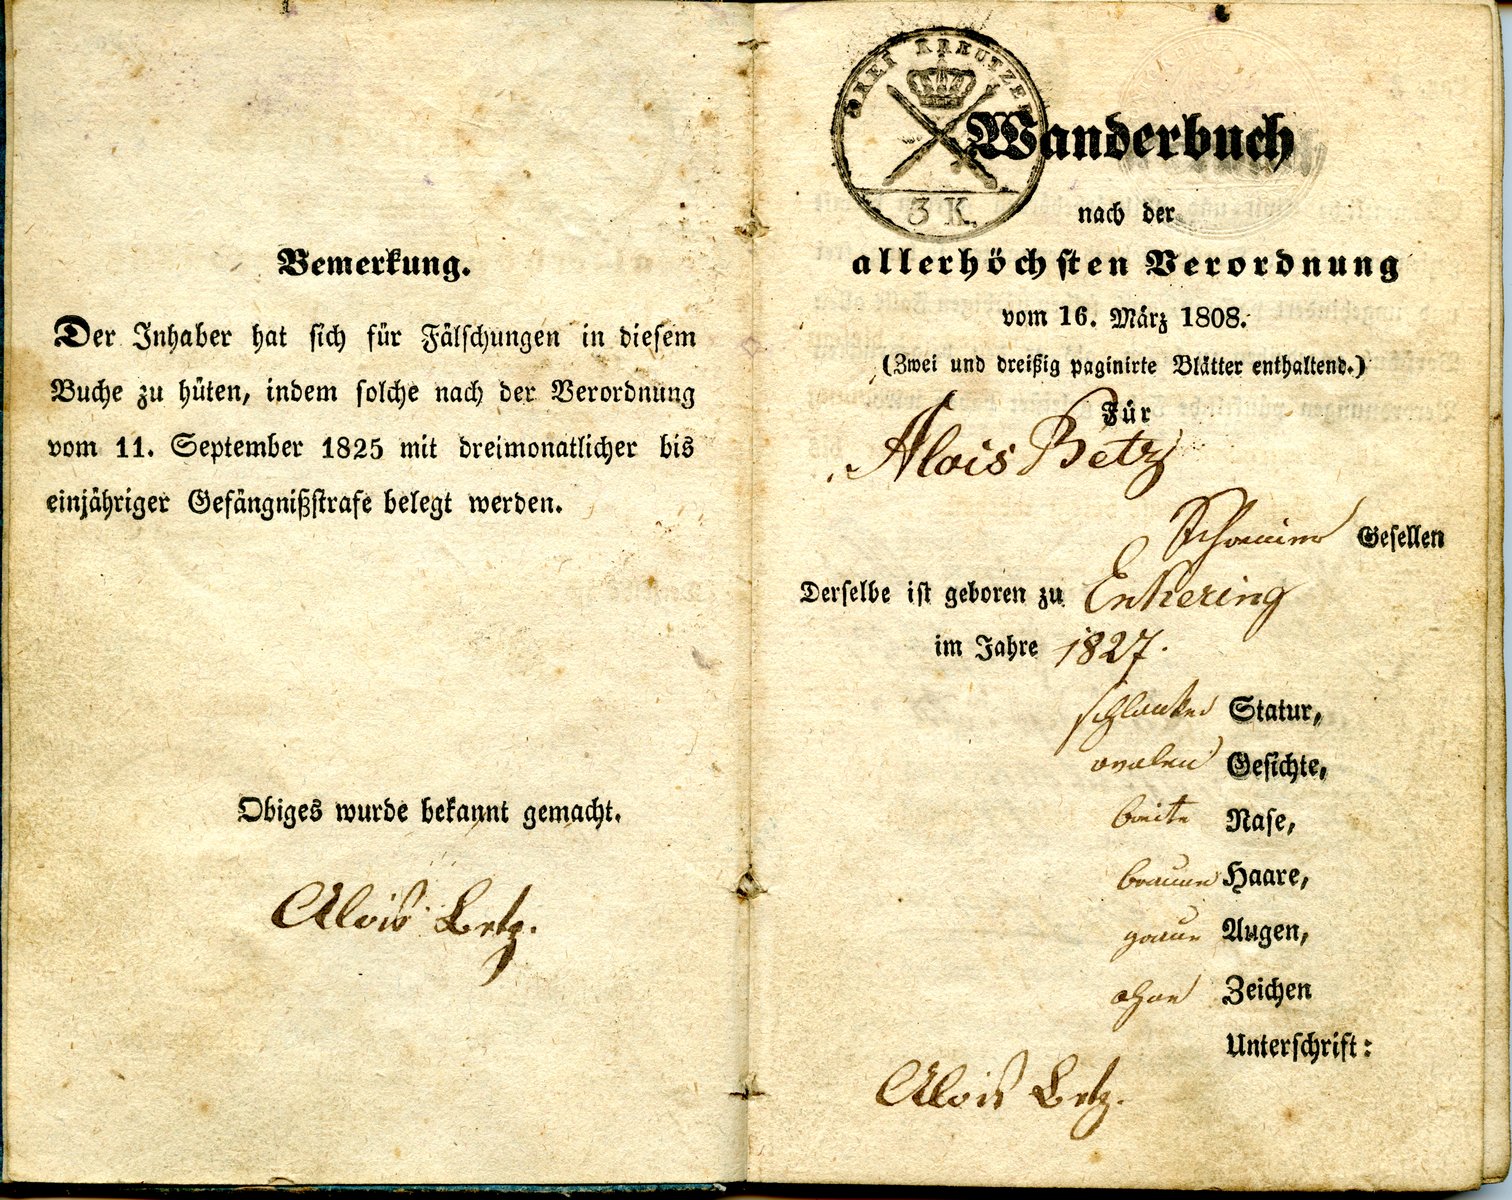 Bemerkung.
Der Inhaber hat sich für Fälschungen in diesem
Buche zu hüten, indem solche nach der Verordnung
vom 11. September 1825 mit dreimonatlicher bis
einjähriger Gefängnißstrafe belegt werden.
Obiges wurde bekannt gemacht.
Alois Betz.
DREI KREUTZER
3 K.
Wanderbuch
nach der
allerhöchsten Verordnung
vom 16. März 1808.
(Zwei und dreißig paginirte Blätter enthaltend.)
Für
Alois Betz
Schreiner Gesellen
Derselbe ist geboren zu Enkering
im Jahre 1827.
schlanker Statur,
ovalen Gesichts,
breite Nase,
braune Haare,
graue Augen,
ohne Zeichen
Unterschrift:
Alois Betz.